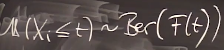 𝟙(Xᵢ ≤ t) ~ Ber(F(t))